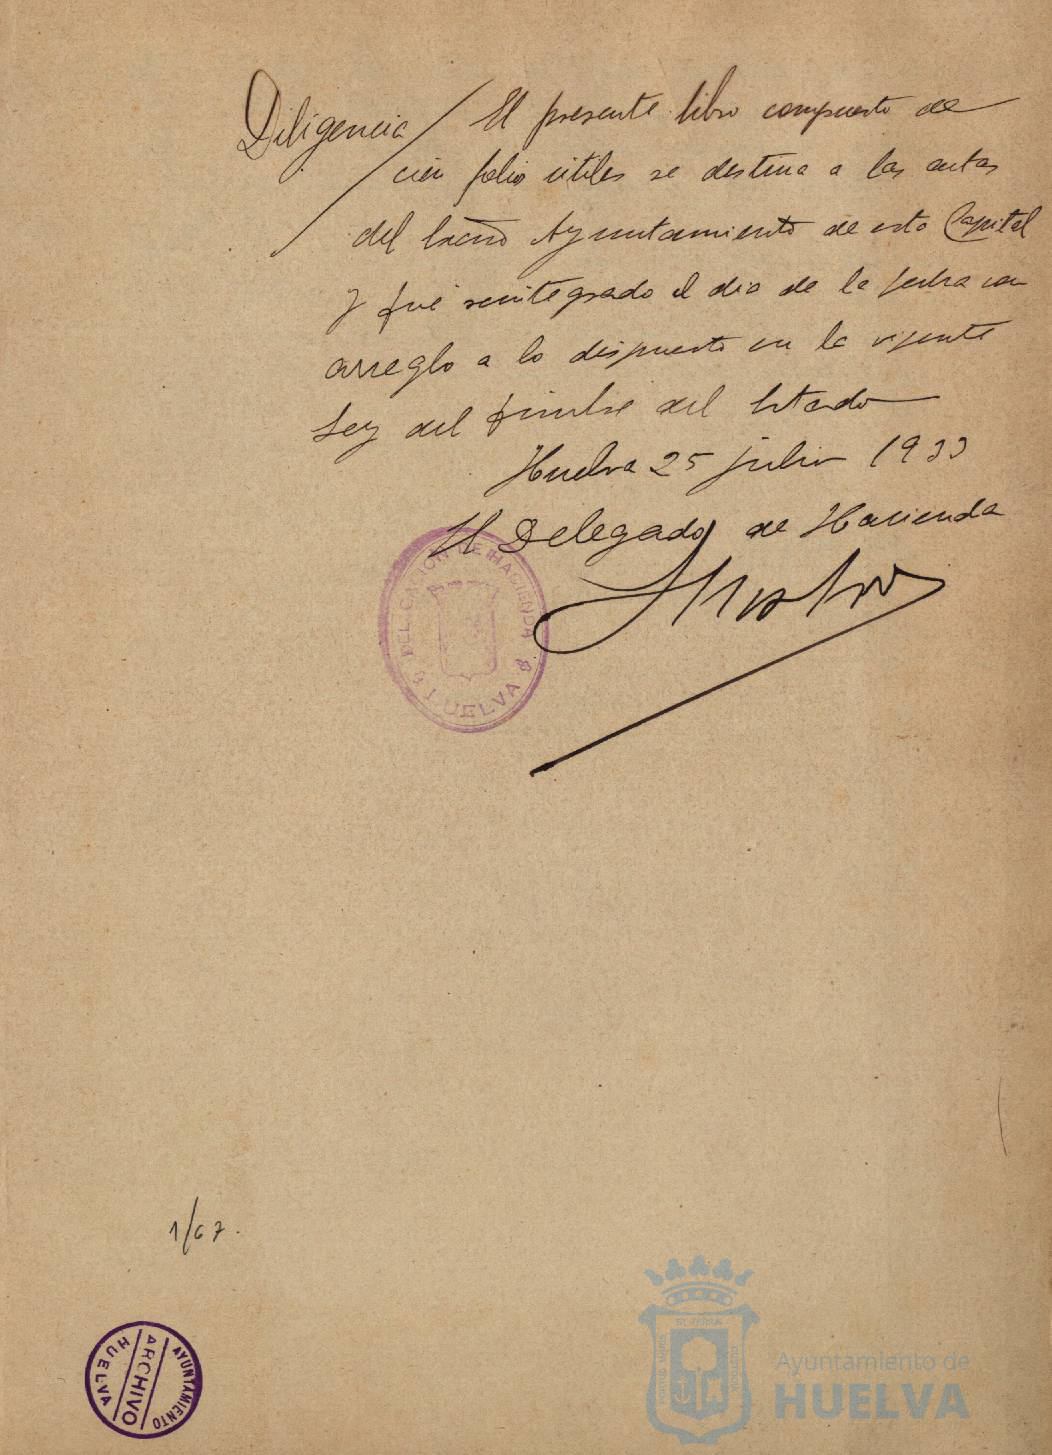 Diligencia / El presente libro compuesto de
cien folio útiles se destina a las actas
del Excmo Ayuntamiento de esta Capital
y fué reintegrado el dia de la fecha con
arreglo a lo dispuesto en la vigente
Ley del timbre del Estado
Huelva 25 julio 1933
El Delegado de Hacienda
DELEGACION DE HACIENDA
HUELVA
1/67.
AYUNTAMIENTO
ARCHIVO
HUELVA
Ayuntamiento de
HUELVA